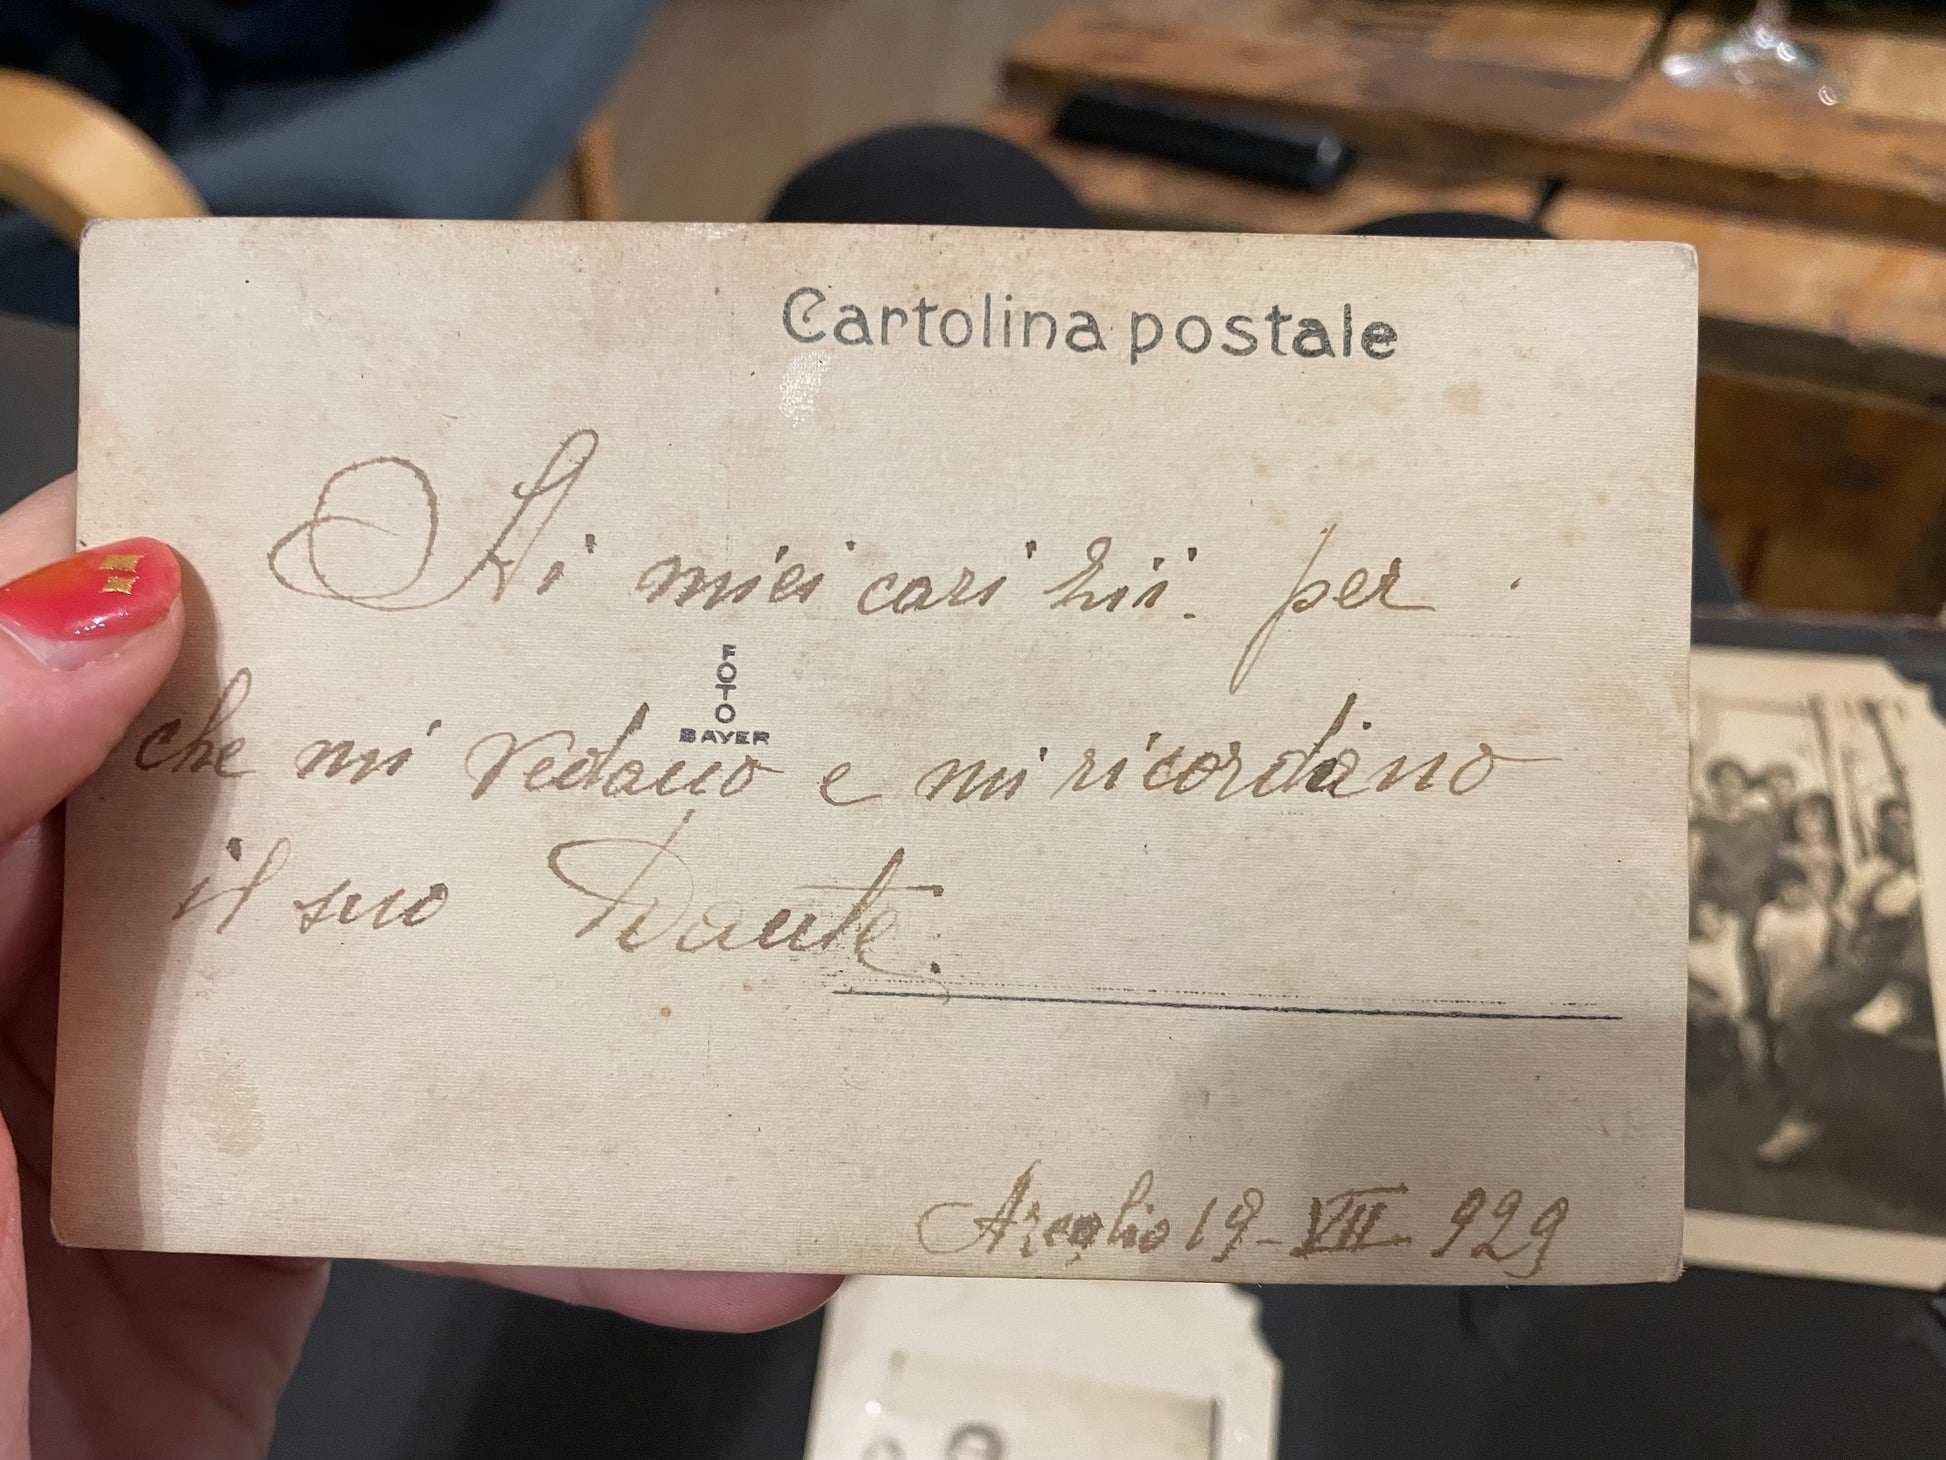 Cartolina postale
Ai miei cari zii. per
FOTO
BAYER
che mi vedano e mi ricordino
il suo Dante.
19-VII-929